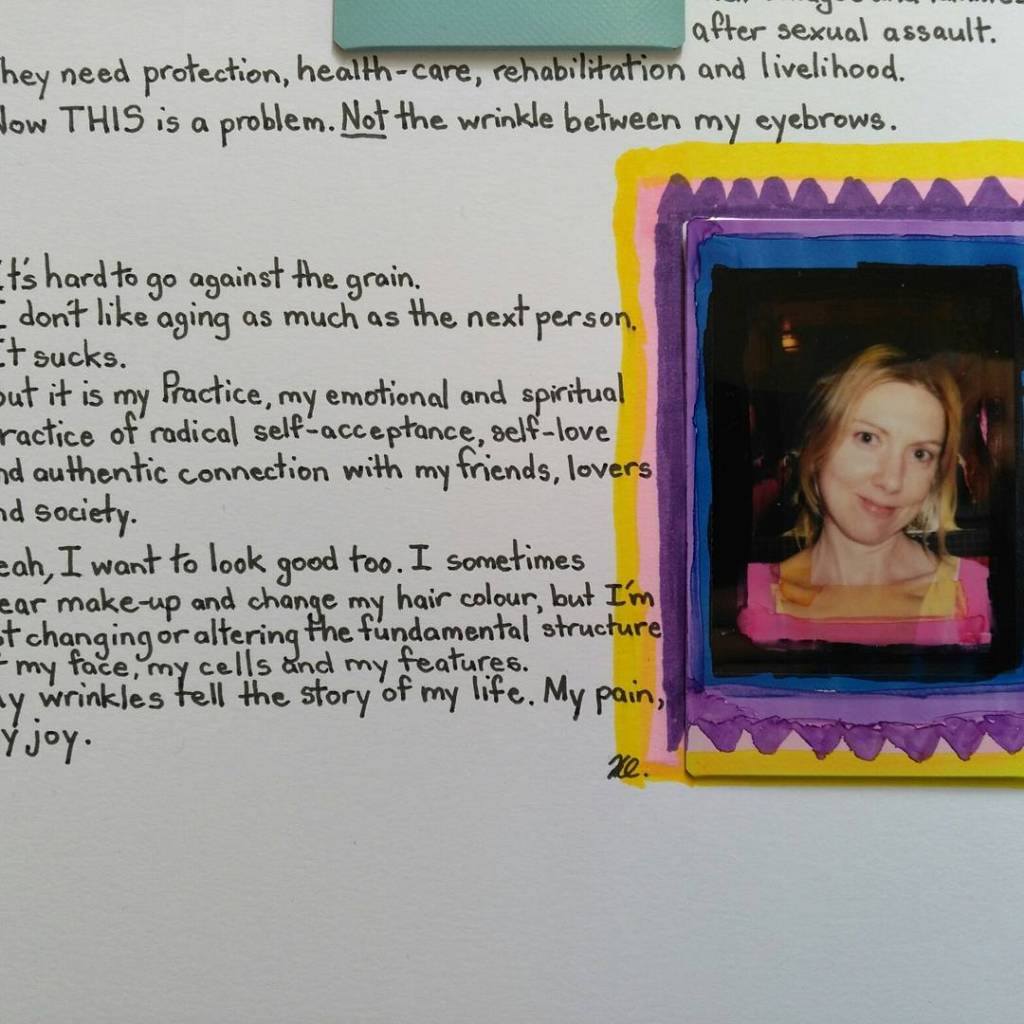 after sexual assault.
hey need protection, health-care, rehabilitation and livelihood.
Now THIS is a problem. Not the wrinkle between my eyebrows.
It's hard to go against the grain.
I don't like aging as much as the next person.
It sucks.
but it is my Practice, my emotional and spiritual
ractice of radical self-acceptance, self-love
nd authentic connection with my friends, lovers
nd society.
eah, I want to look good too. I sometimes
ear make-up and change my hair colour, but I'm
t changing or altering the fundamental structure
f my face, my cells and my features.
My wrinkles tell the story of my life. My pain,
y joy.